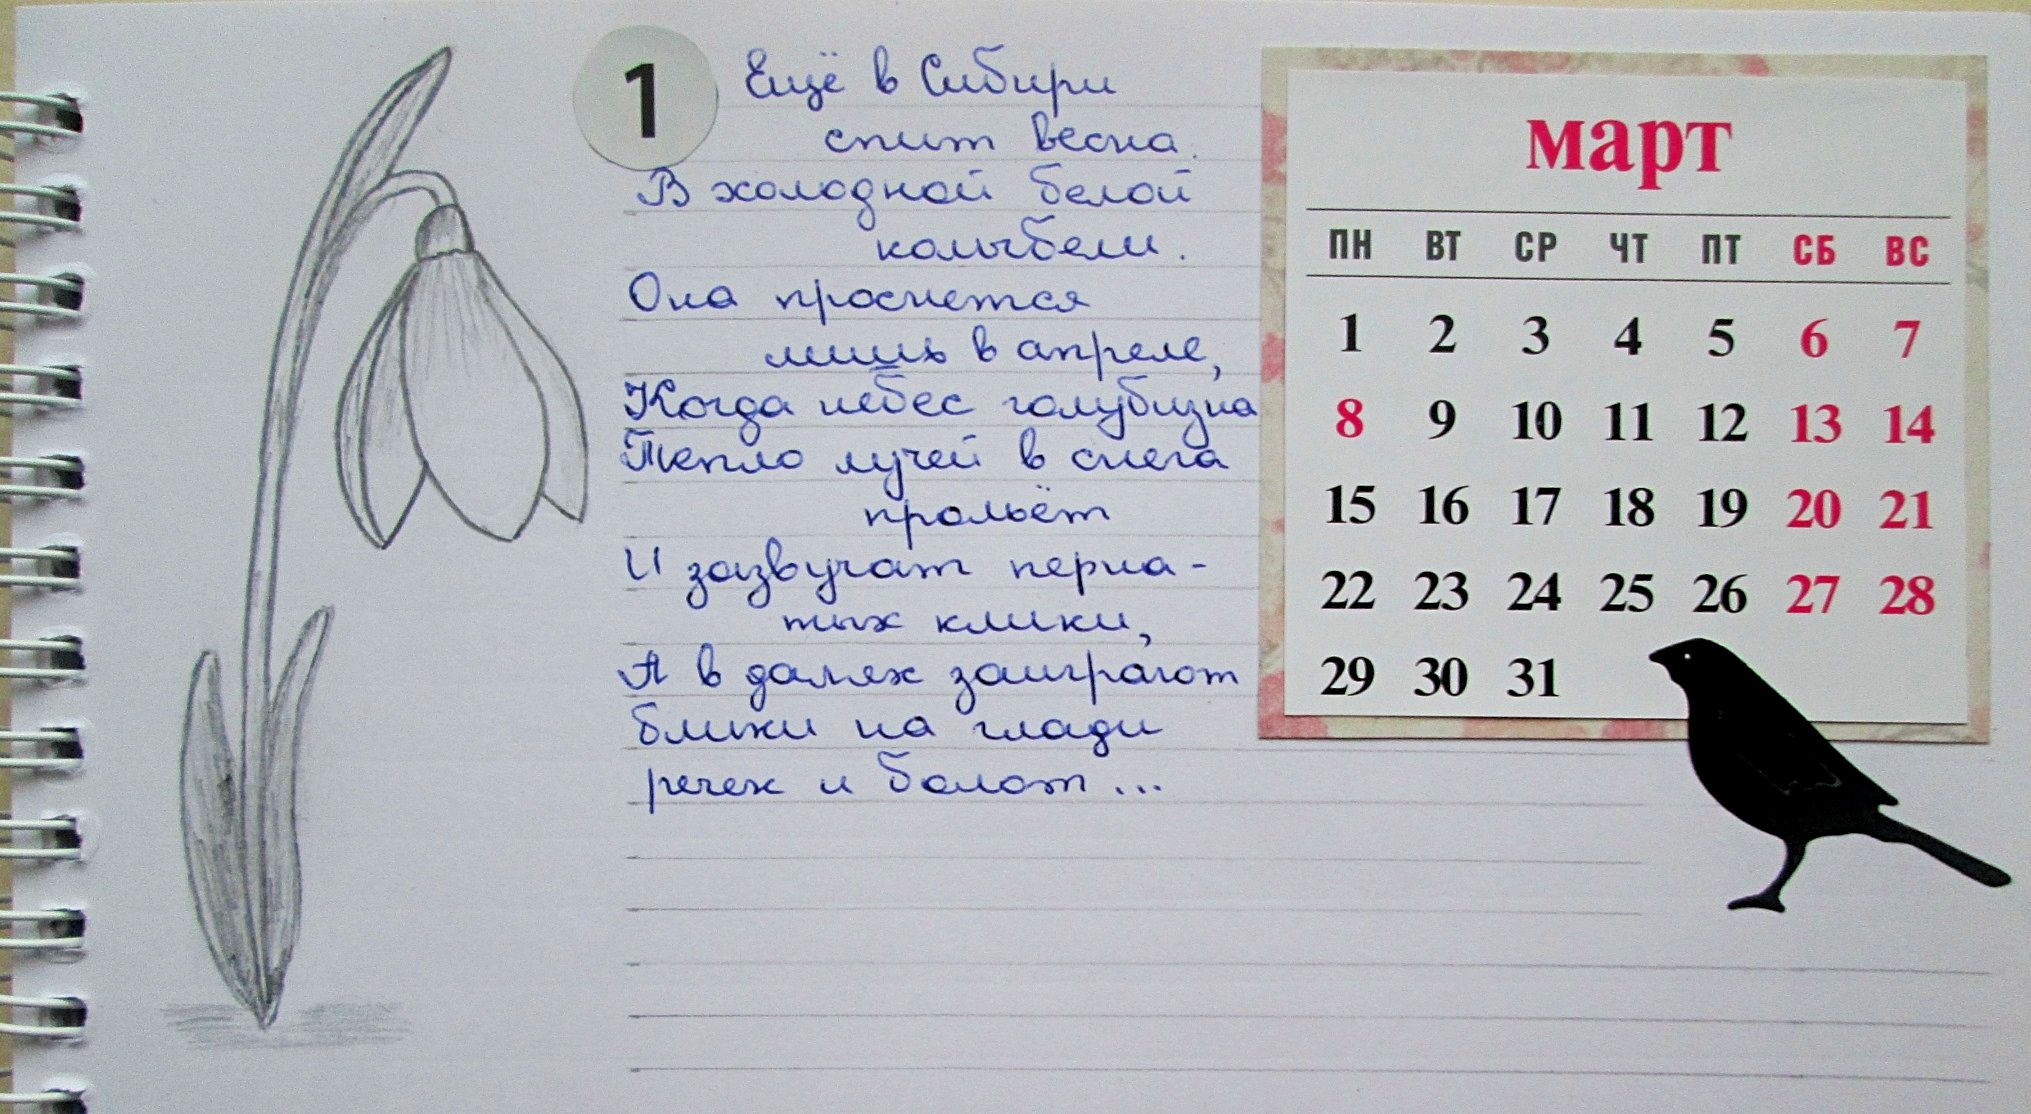 1
Ещё в Сибири
спит весна.
В холодной белой
колыбели.
Она проснется
лишь в апреле,
Когда небес голубизна
Тепло лучей в снега
прольёт
И зазвучат перна-
тых клики,
А в далях заиграют
блики на глади
речек и болот...
март
ПН ВТ СР ЧТ ПТ СБ ВС
1 2 3 4 5 6 7
8 9 10 11 12 13 14
15 16 17 18 19 20 21
22 23 24 25 26 27 28
29 30 31